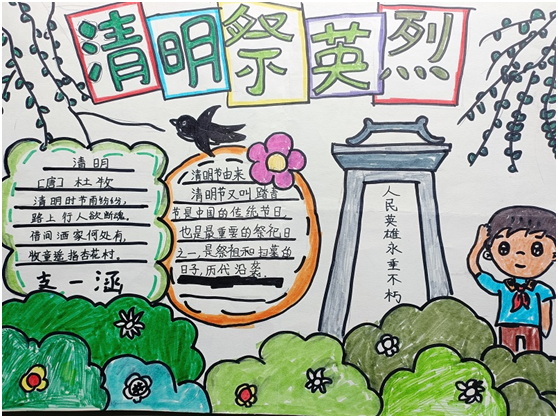 清明祭英烈
清明
[唐] 杜牧
清明时节雨纷纷,
路上行人欲断魂。
借问酒家何处有,
牧童遥指杏花村。
支一涵
清明节由来
清明节又叫踏青
节是中国的传统节日,
也是最重要的祭祀日
之一,是祭祖和扫墓的
日子,历代沿袭。
人民英雄永垂不朽